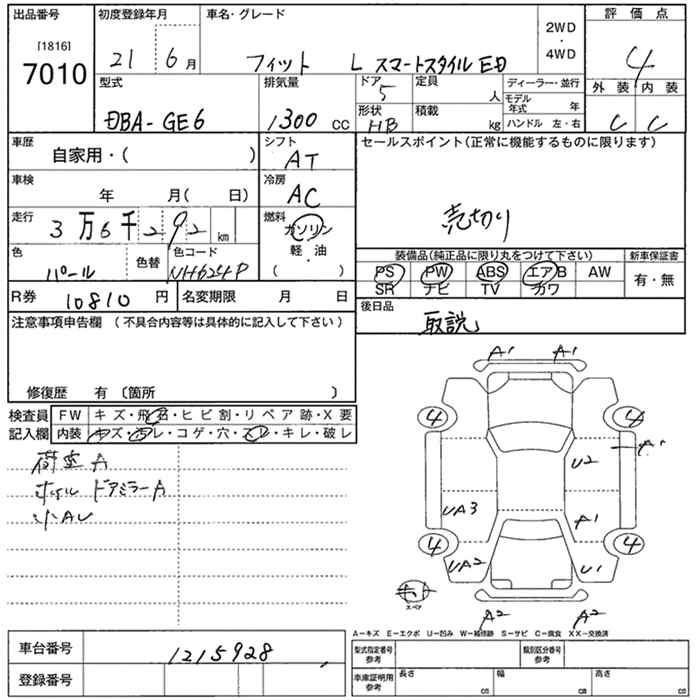 出品番号
[1816]
7010
初度登録年月
21 6月
車名・グレード
フィット L スマートスタイルED
2WD
・
4WD
評価点
4
型式
DBA-GE6
排気量
1300 CC
ドア
5
形状
HB
定員
人
積載
kg
ディーラー・並行
モデル年式 年
ハンドル 左・右
外装 内装
C C
車歴
自家用・( )
シフト
AT
車検
年 月( 日)
冷房
AC
走行
3万6千292km
燃料
ガソリン
軽・油
・
( )
色
パール
色替
色コード
NH624P
R券 10810 円
名変期限 月 日
セールスポイント(正常に機能するものに限ります)
売切り
装備品(純正品に限り丸をつけて下さい)
新車保証書
PS PW ABS エアB AW
SR ナビ TV カワ
有・無
後日品
取説
注意事項申告欄(不具合内容等は具体的に記入して下さい)
修復歴 有〔箇所 〕
検査員
記入欄
FW キズ・飛石・ヒビ割・リペア跡・X要
内装 キズ・汚レ・コゲ・穴・スレ・キレ・破レ
荷室A
ホイル ドアミラーA
小AU
A1 A1
4 4
U2 A1
UA3 A1
4 4
UA2 U1
スペア
A2 A2
A-キズ E-エクボ U-凹み W-補修跡 S-サビ C-腐食 XX-交換済
車台番号 1215928
登録番号
型式指定番号
参考
類別区分番号
参考
車庫証明用
参考
長さ cm
幅 cm
高さ cm